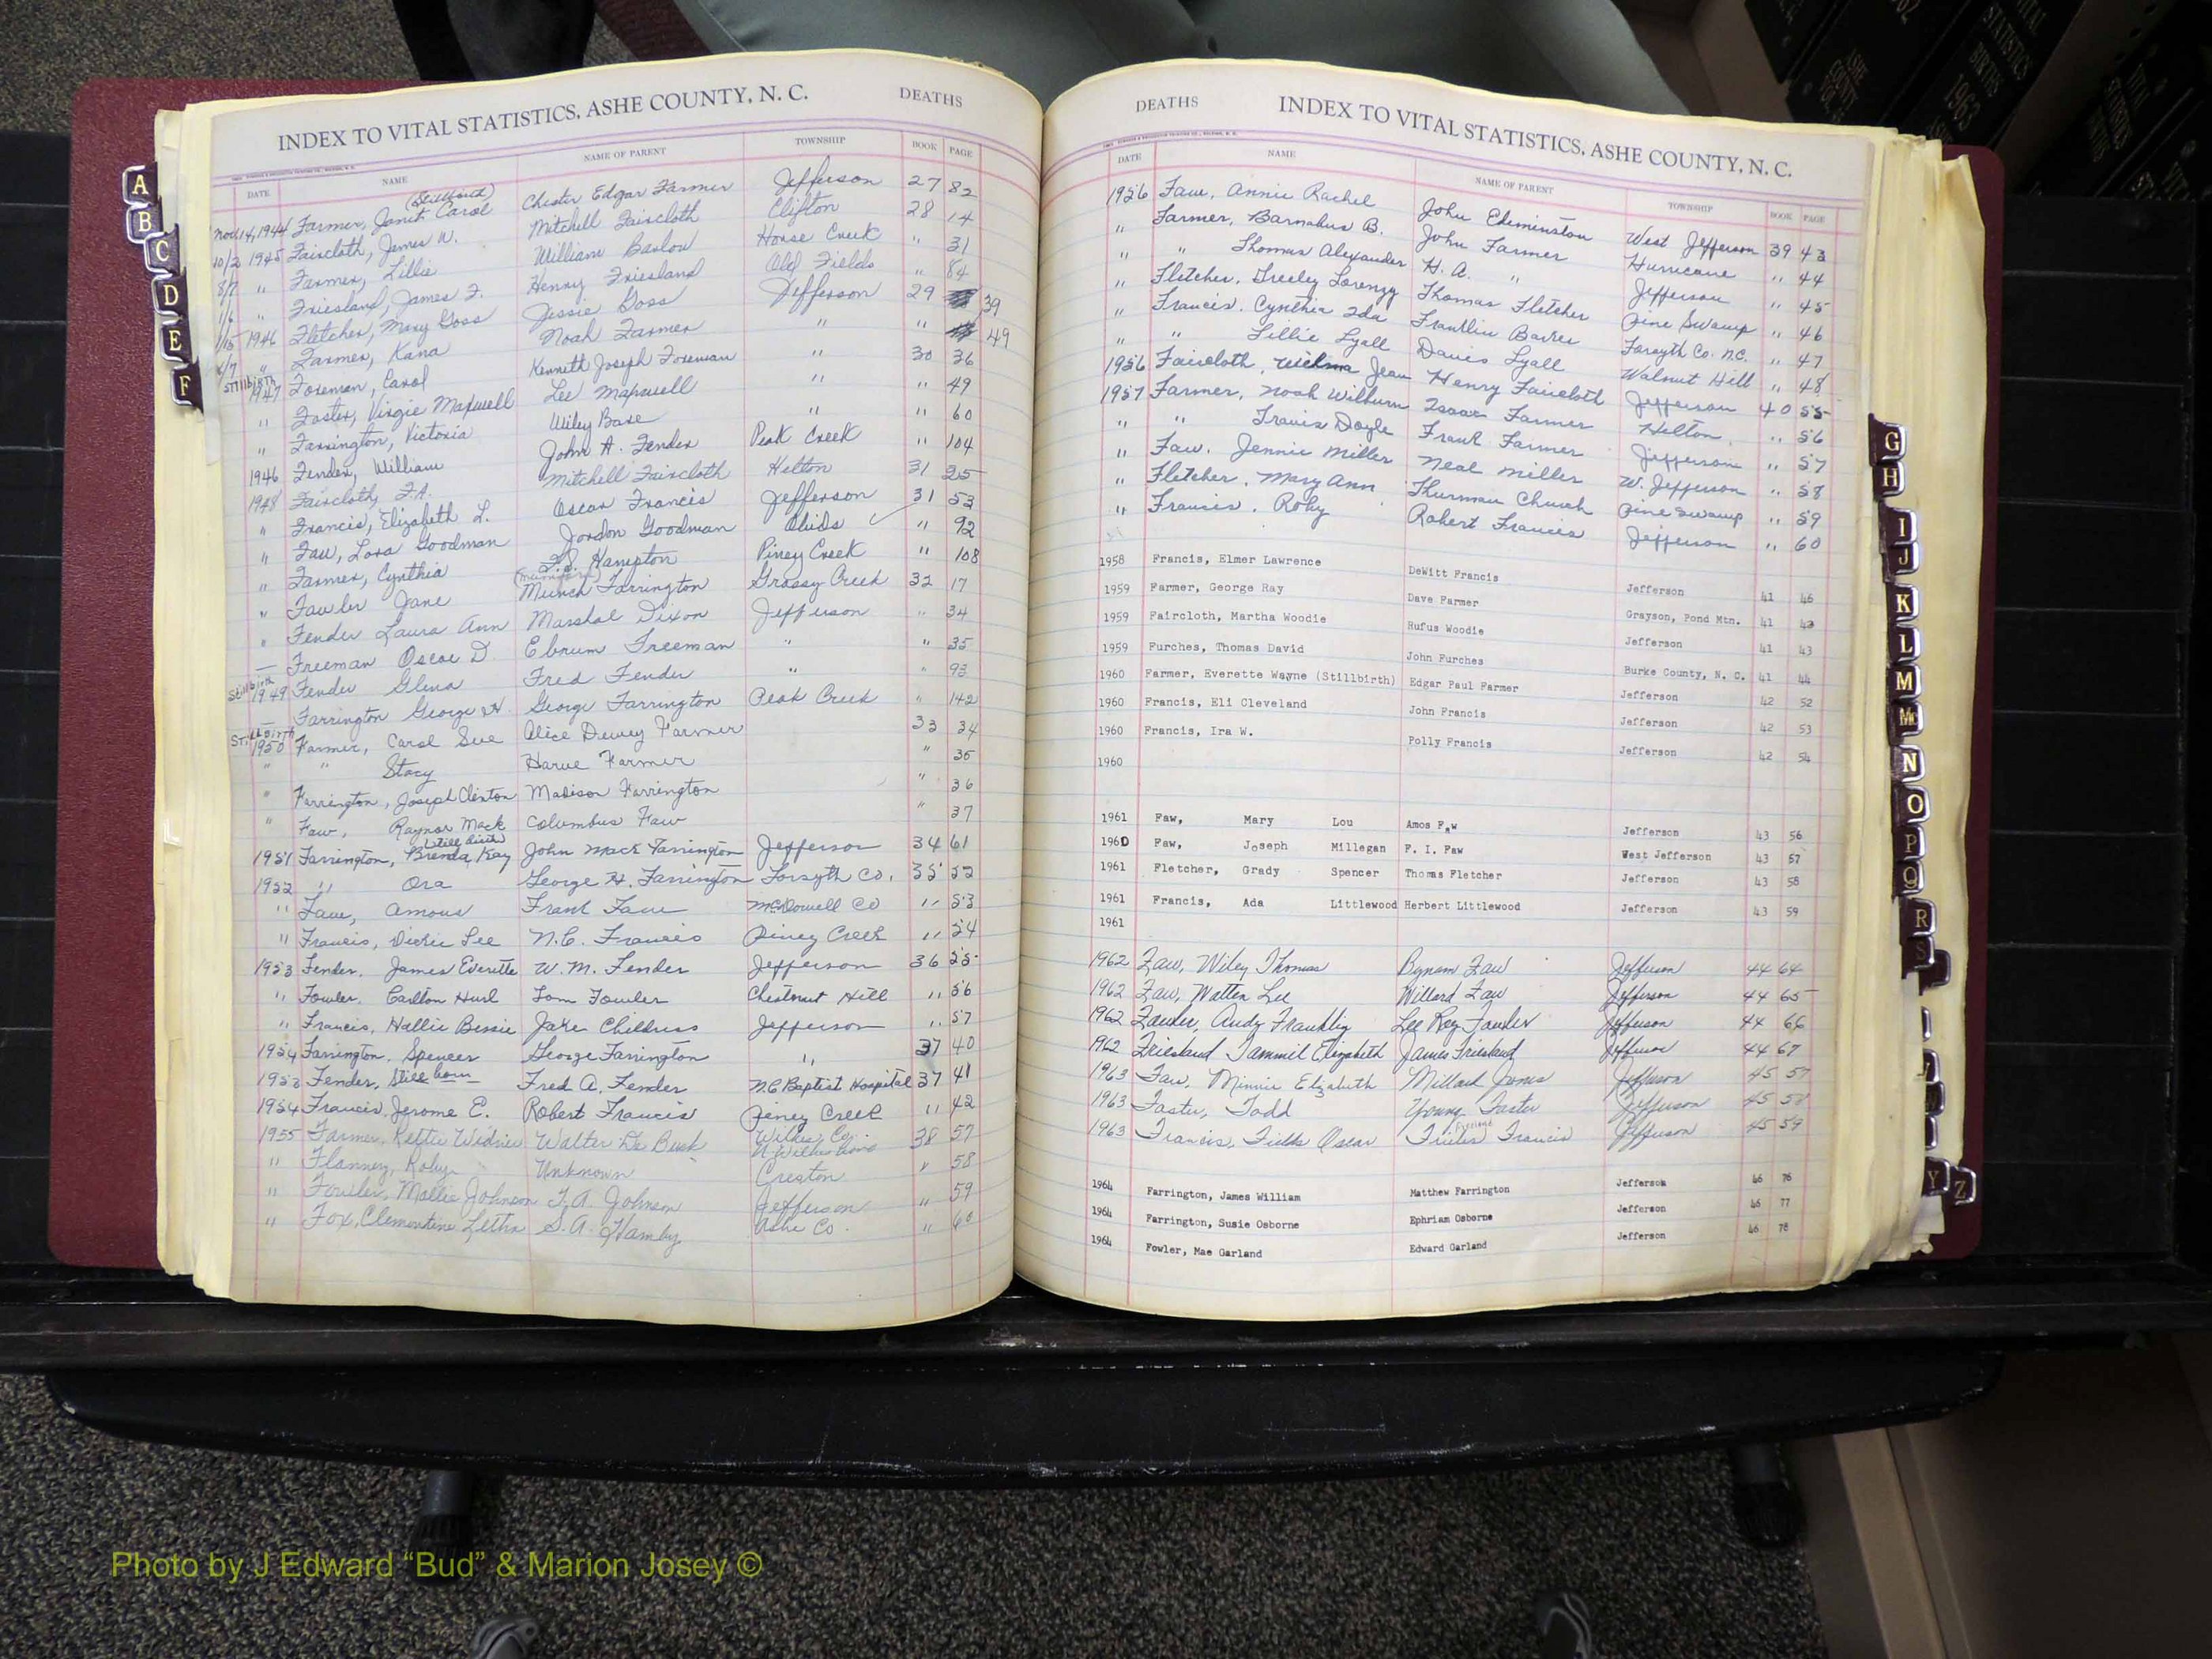 INDEX TO VITAL STATISTICS, ASHE COUNTY, N. C. DEATHS
DATE NAME NAME OF PARENT TOWNSHIP BOOK PAGE
(Stillbirth)
Nov. 14, 1944 Farmer, Janet Carol Chester Edgar Farmer Jefferson 27 82
10/2 1945 Faircloth, James W. Mitchell Faircloth Clifton 28 14
8/7 " Farmer, Lillie William Barlow Horse Creek " 31
1/6 " Friesland, James F. Henry Friesland Old Fields " 84
1/15 1946 Fletcher, Mary Goss Jessie Goss Jefferson 29 39
4/7 " Farmer, Kana Noah Farmer " " 49
Stillbirth 1947 Foreman, Carol Kenneth Joseph Foreman " 30 36
" Foster, Virgie Maxwell Lee Maxwell " " 49
" Farrington, Victoria Wiley Bare " " 60
1946 Fender, William John A. Fender Peak Creek " 104
1948 Faircloth, F.A. Mitchell Faircloth Helton 31 25
" Francis, Elizabeth L. Oscar Francis Jefferson 31 53
" Faw, Lora Goodman Jordon Goodman Obids " 92
" Farmer, Cynthia Hampton Piney Creek " 108
" Fawler Jane Munch Farrington Grassy Creek 32 17
" Fender Laura Ann Marshal Dixon Jefferson " 34
— Freeman Oscoe D. Ebrum Freeman " " 35
Stillbirth 1949 Fender Glena Fred Fender " " 93
— Farrington George H. George Farrington Peak Creek " 142
Stillbirth 1950 Farmer, Carol Sue Alice Dewey Farmer 33 34
" " Stacy Harve Farmer " 35
" Farrington, Joseph Clinton Madison Farrington " 36
" Faw, Raynor Mack Columbus Faw " 37
still birth
1951 Farrington, Brenda Kay John Mack Farrington Jefferson 34 61
1952 " Ora George H. Farrington Forsyth Co. 35 52
" Faw, Amous Frank Faw McDowell Co " 53
" Francis, Dickie Lee N.C. Francis Piney Creek " 54
1953 Fender, James Everette W. M. Fender Jefferson 36 55
" Fowler, Carlton Hurl Tom Fowler Chestnut Hill " 56
" Francis, Hallie Bessie Jake Childress Jefferson " 57
1954 Farrington, Spencer George Farrington " 37 40
1953 Fender, Still born Fred A. Fender N.C. Baptist Hospital 37 41
1954 Francis, Jerome E. Robert Francis Piney Creek " 42
1955 Farmer, Kettie Widner Walter De Busk Wilkes Co. N. Wilkesboro 38 57
" Flannery, Roby Unknown Creston " 58
" Fowler, Mollie Johnson T. A. Johnson Jefferson " 59
" Fox, Clementine Letha S. A. Hamby Ashe Co. " 60
DEATHS INDEX TO VITAL STATISTICS, ASHE COUNTY, N. C.
DATE NAME NAME OF PARENT TOWNSHIP BOOK PAGE
1956 Faw, Annie Rachel John Edminston West Jefferson 39 43
" Farmer, Barnabus B. John Farmer Hurricane " 44
" " Thomas Alexander H. A. " Jefferson " 45
" Fletcher, Greeley Lorenzy Thomas Fletcher Pine Swamp " 46
" Francis, Cynthia Ida Franklin Barker Forsyth Co. N.C. " 47
" " Lillie Lyall Davis Lyall Walnut Hill " 48
1956 Faircloth, Wilma Jean Henry Faircloth Jefferson 40 55
1957 Farmer, Noah Wilburn Isaac Farmer Helton " 56
" " Travis Doyle Frank Farmer Jefferson " 57
" Faw, Jennie Miller Neal Miller W. Jefferson " 58
" Fletcher, Mary Ann Thurman Church Pine Swamp " 59
" Francis, Roby Robert Francis Jefferson " 60
1958 Francis, Elmer Lawrence DeWitt Francis Jefferson 41 46
1959 Farmer, George Ray Dave Farmer Grayson, Pond Mtn. 41 42
1959 Faircloth, Martha Woodie Rufus Woodie Jefferson 41 43
1959 Furches, Thomas David John Furches Burke County, N. C. 41 44
1960 Farmer, Everette Wayne (Stillbirth) Edgar Paul Farmer Jefferson 42 52
1960 Francis, Eli Cleveland John Francis Jefferson 42 53
1960 Francis, Ira W. Polly Francis Jefferson 42 54
1960
1961 Faw, Mary Lou Amos Faw Jefferson 43 56
1960 Faw, Joseph Millegan F. I. Faw West Jefferson 43 57
1961 Fletcher, Grady Spencer Thomas Fletcher Jefferson 43 58
1961 Francis, Ada Littlewood Herbert Littlewood Jefferson 43 59
1961
1962 Faw, Wiley Thomas Bynam Faw Jefferson 44 64
1962 Faw, Walter Lee Willard Faw Jefferson 44 65
1962 Fowler, Andy Franklin Lee Roy Fowler Jefferson 44 66
1962 Friesland Tammie Elizabeth James Friesland Jefferson 44 67
1963 Faw, Minnie Elizabeth Millard Jones Jefferson 45 57
1963 Foster, Todd Young Foster Jefferson 45 58
1963 Francis, Fields Oscar Francis Jefferson 45 59
1964 Farrington, James William Matthew Farrington Jefferson 46 76
1964 Farrington, Susie Osborne Ephriam Osborne Jefferson 46 77
1964 Fowler, Mae Garland Edward Garland Jefferson 46 78
A
B
C
D
E
F
G
H
I
J
K
L
M
Mc
N
O
P
Q
R
S
Y
Z
VITAL STATISTICS BIRTHS 1963
Photo by J Edward “Bud” & Marion Josey ©